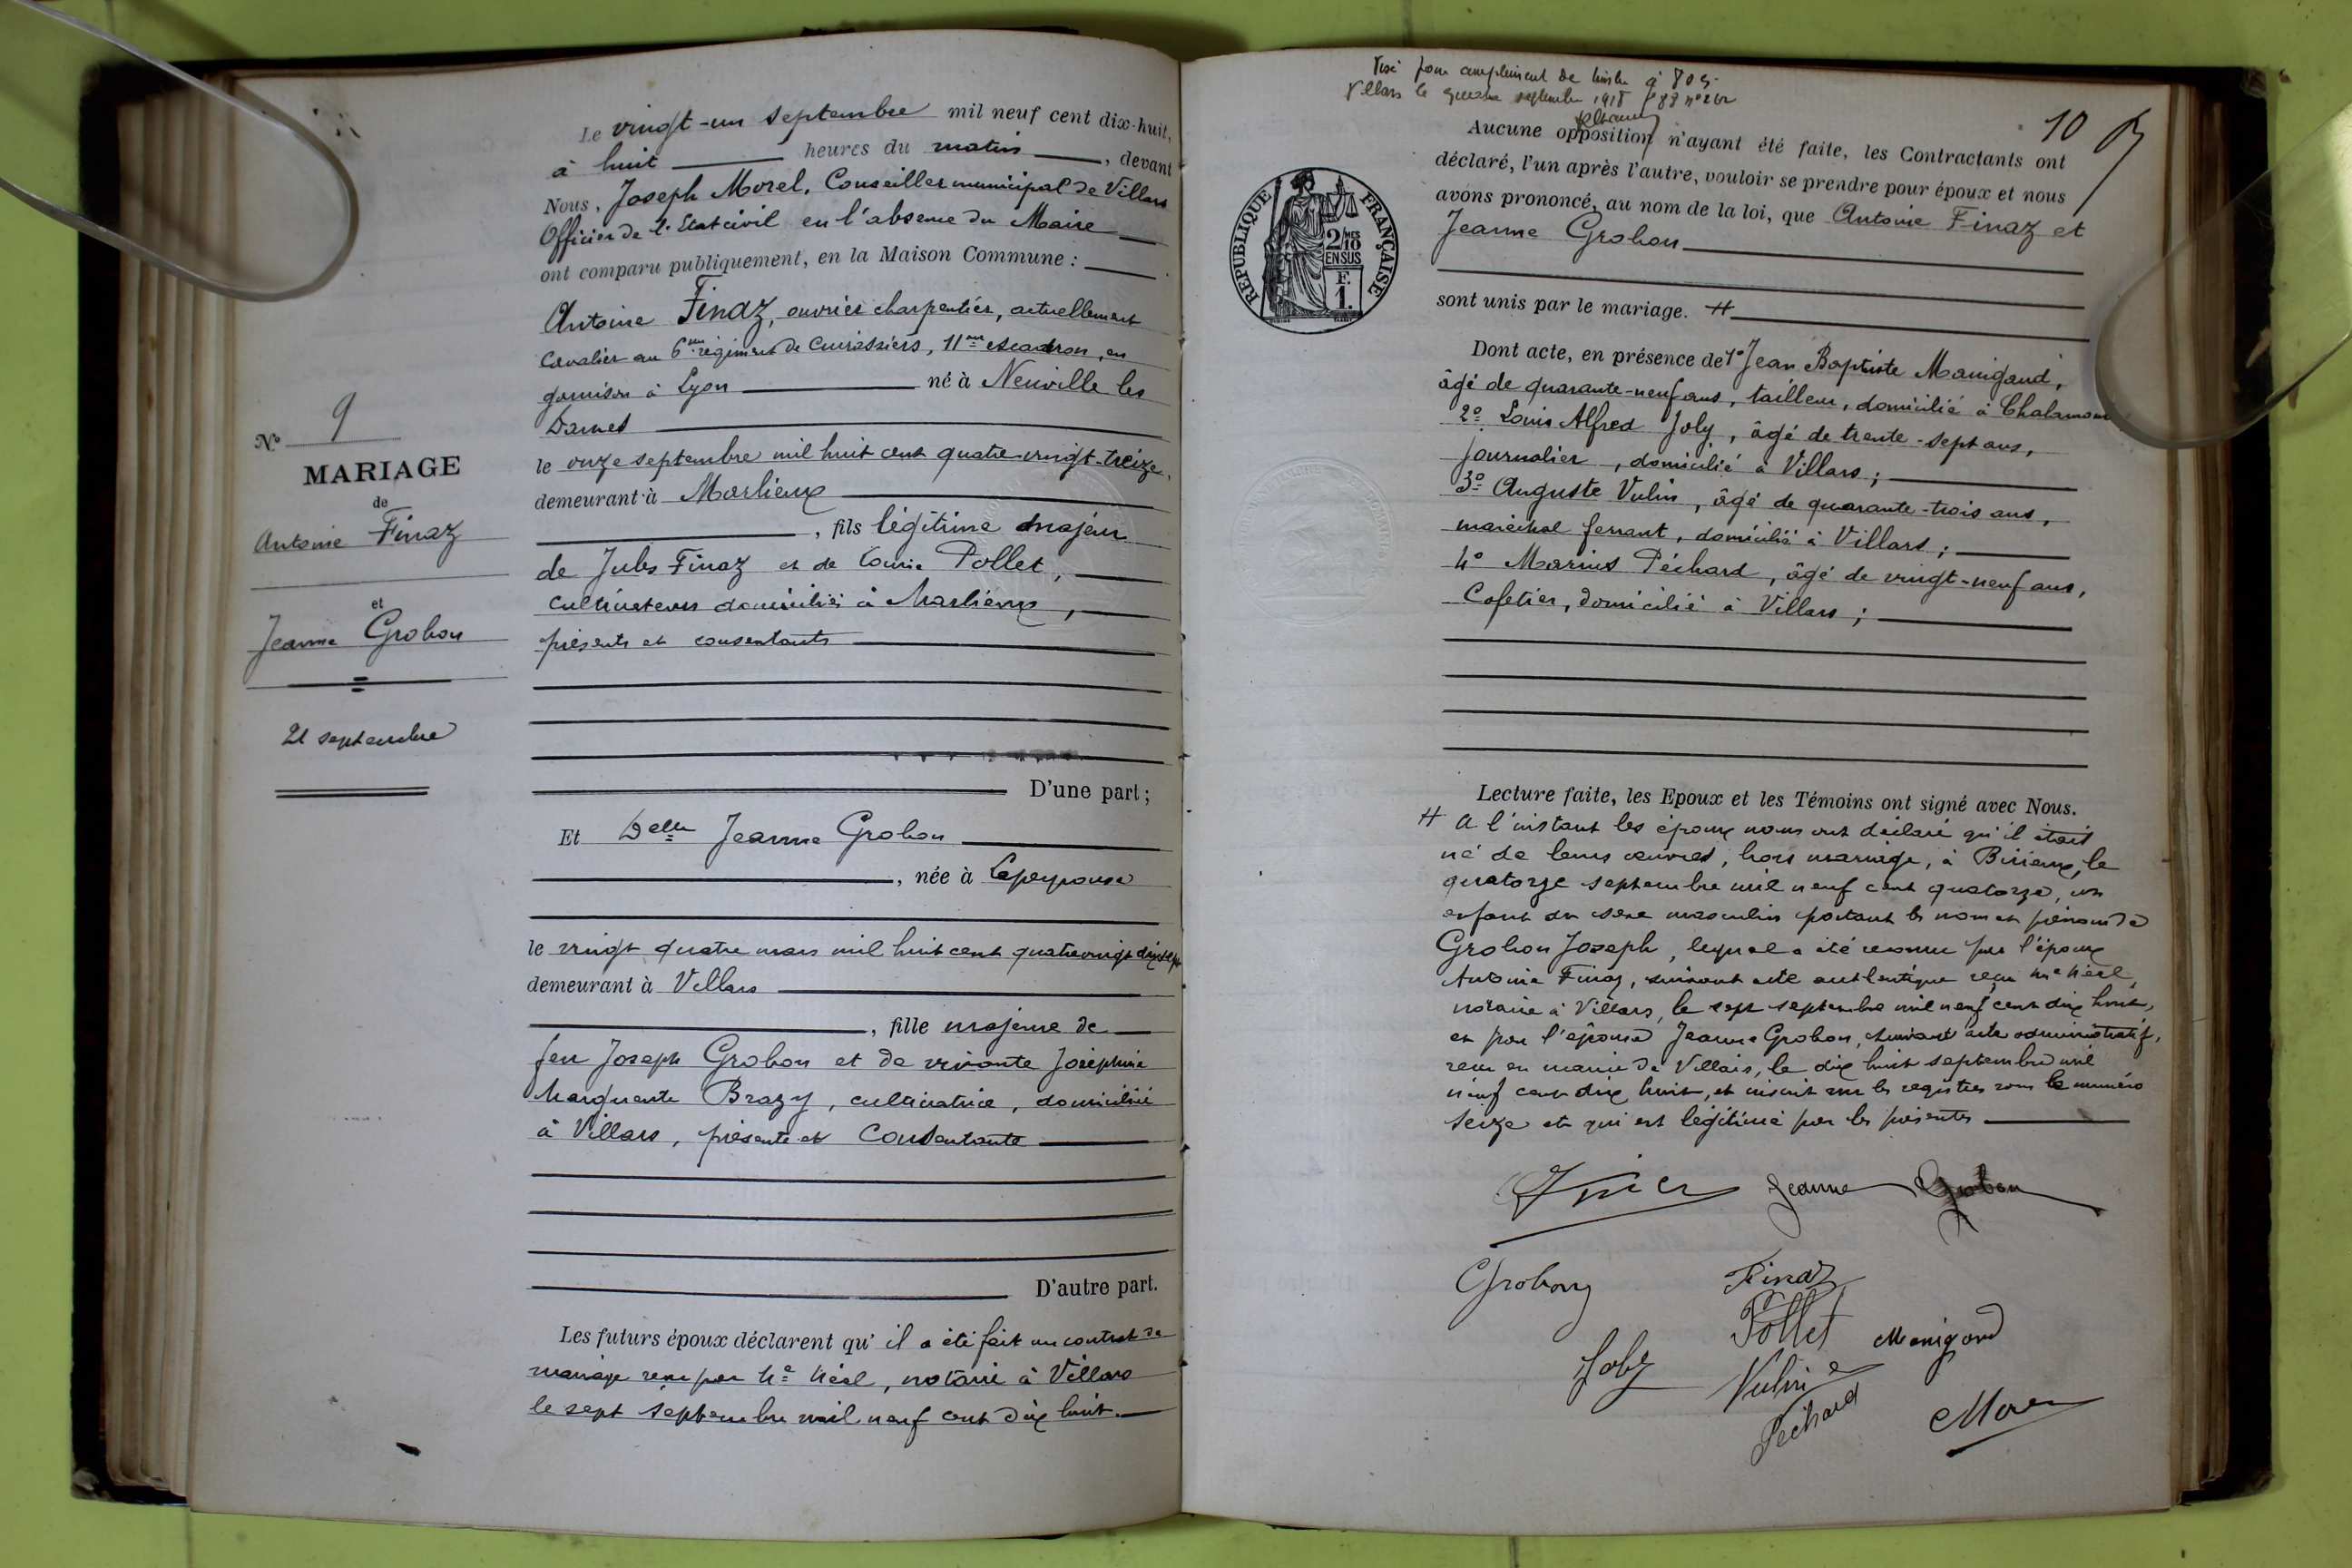 Nº 9
MARIAGE
de
Antoine Finaz
et
Jeanne Grobon
21 septembre
Le vingt-un septembre mil neuf cent dix-huit,
à huit heures du matin, devant
Nous, Joseph Morel, Conseiller municipal de Villars
Officier de l'Etat civil en l'absence du Maire
ont comparu publiquement, en la Maison Commune :
Antoine Finaz, ouvrier charpentier, actuellement
Cavalier au 6me régiment de Cuirassiers, 11me escadron, en
garnison à Lyon né à Neuville les
Dames
le onze septembre mil huit cent quatre-vingt-treize,
demeurant à Marlieux
, fils légitime majeur
de Jules Finaz et de Louise Pollet,
cultivateurs domiciliés à Marlieux,
présents et consentants
D'une part ;
Et Delle Jeanne Grobon
, née à Lapeyrouse
le vingt quatre mars mil huit cent quatrevingt dix sept
demeurant à Villars
, fille majeure de
feu Joseph Grobon et de vivante Joséphine
Marguerite Brazy, cultivatrice, domiciliée
à Villars, présente et consentante
D'autre part.
Les futurs époux déclarent qu'il a été fait un contrat de
mariage reçu par Me Néel, notaire à Villars
le sept septembre mil neuf cent dix huit.
Visé pour complément de timbre à
Villars le quinze septembre 1918
10
Aucune opposition n'ayant été faite, les Contractants ont
déclaré, l'un après l'autre, vouloir se prendre pour époux et nous
avons prononcé, au nom de la loi, que Antoine Finaz et
Jeanne Grobon
REPUBLIQUE FRANÇAISE
2/10MES
EN SUS
F.
1.
sont unis par le mariage. #
Dont acte, en présence de 1º Jean Baptiste Manigand,
âgé de quarante-neuf ans, tailleur, domicilié à Chalamont
2º Louis Alfred Joly, âgé de trente-sept ans,
journalier, domicilié à Villars ;
3º Auguste Vulin, âgé de quarante-trois ans,
maréchal ferrant, domicilié à Villars ;
4º Marius Péchard, âgé de vingt-neuf ans,
Cafetier, domicilié à Villars ;
Lecture faite, les Epoux et les Témoins ont signé avec Nous.
# A l'instant les époux nous ont déclaré qu'il était
né de leurs œuvres, hors mariage, à Birieux, le
quatorze septembre mil neuf cent quatorze, un
enfant du sexe masculin portant les nom et prénom de
Grobon Joseph, lequel a été reconnu par l'époux
Antoine Finaz, suivant acte authentique reçu Me Néel,
notaire à Villars, le sept septembre mil neuf cent dix huit,
et par l'épouse Jeanne Grobon, suivant acte administratif,
reçu en mairie de Villars, le dix huit septembre mil
neuf cent dix huit, et inscrit sur les registres sous le numéro
seize et qui est légitimé par les présentes
Jeanne Grobon
Grobon Finaz
Pollet Manigand
Joly Vulin
Péchard Morel